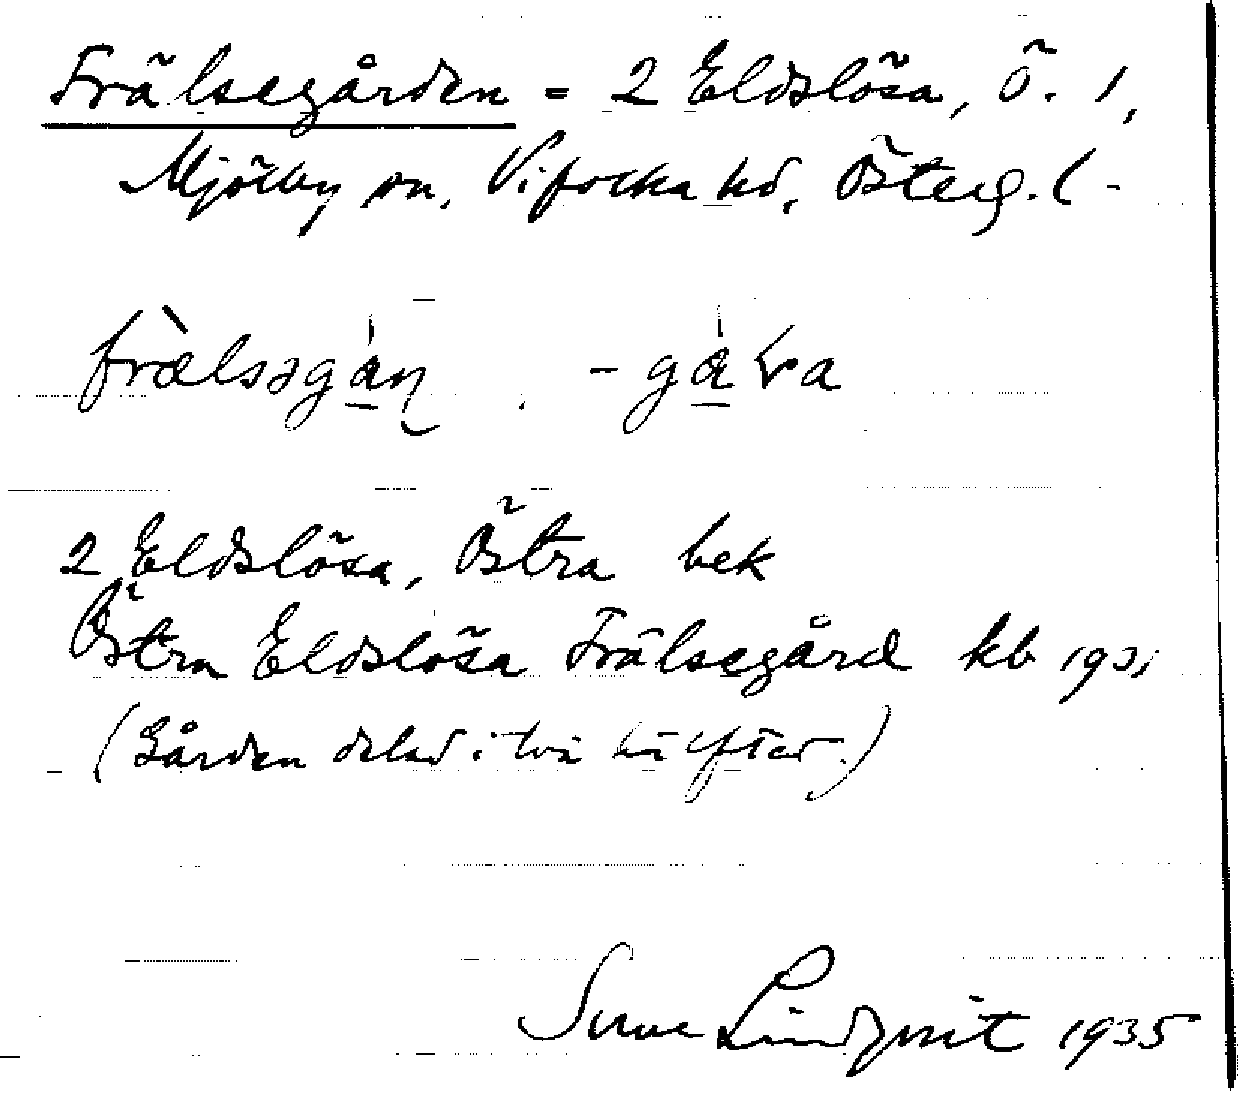 Frälsegården = 2 Eldslösa, Ö. 1,
Mjölby sn, Vifolka hd, Österg. l.
frælsəgån̥ -gåra
2 Eldslösa, Östra bek
Östra Eldslösa Frälsegård kb 1931
(Gården delad i två hälfter.)
Sune Lindqvist 1935